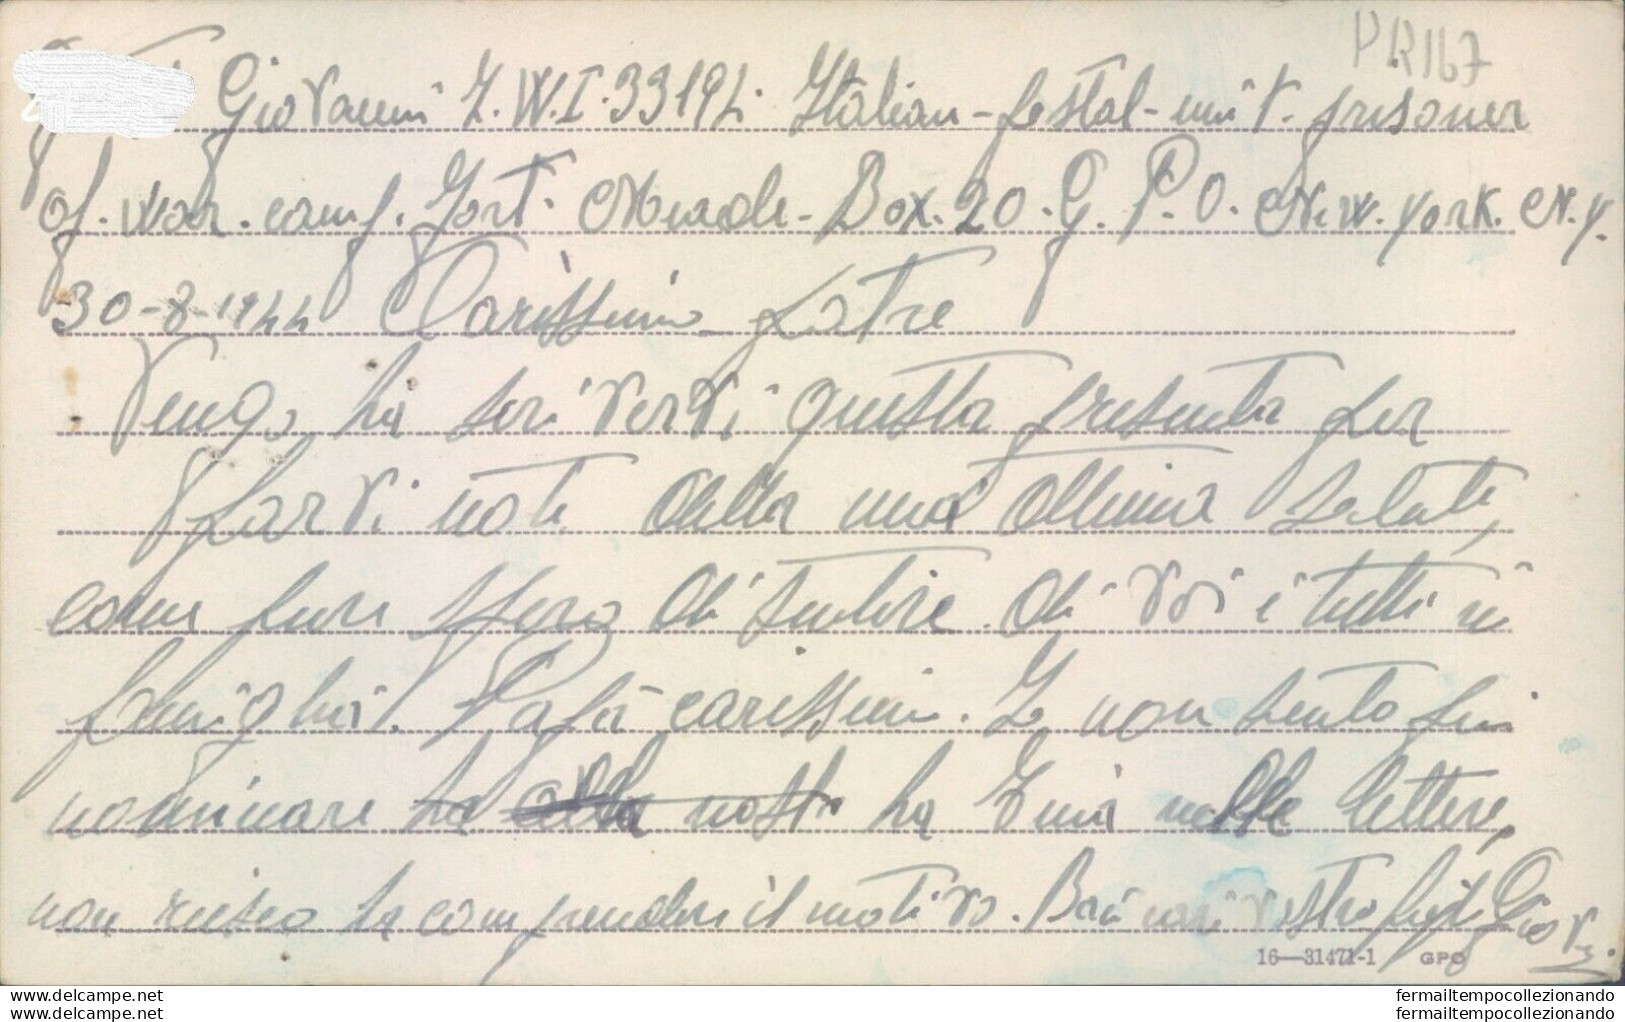 PR167
Giovanni 7.W.I.33194. Italian-postal-unit. prisoner
of. war. camp. Fort. Meade-Box.20.G.P.O. New.york.N.y.
30-8-1944 Carissimo patre
Vengo ha scrivervi questa presenta per
farvi note della mia ottima salute,
come pure spero di sentire di voi e tutti in
famighia. Papà carissimi. Io non sento piu
nominare ha alla nostr ha Enia nelle lettere,
non riesco ha comprendere il motivo. Baci cari vostro figlio Giov
16—31471-1 GPO
fermailtempocollezionando
fermailtempocollezionando
www.delcampe.net
www.delcampe.net